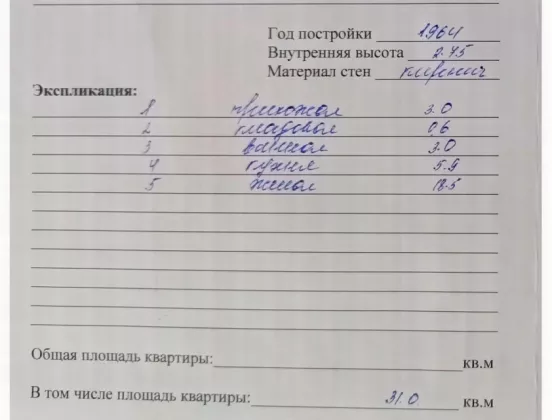 Год постройки 1964
Внутренняя высота 2.75
Материал стен кирпич
Экспликация:
1 прихожая 3.0
2 кладовая 0,6
3 ванная 3.0
4 кухня 5.9
5 жилая 18.5
Общая площадь квартиры: кв.м
В том числе площадь квартиры: 31.0 кв.м